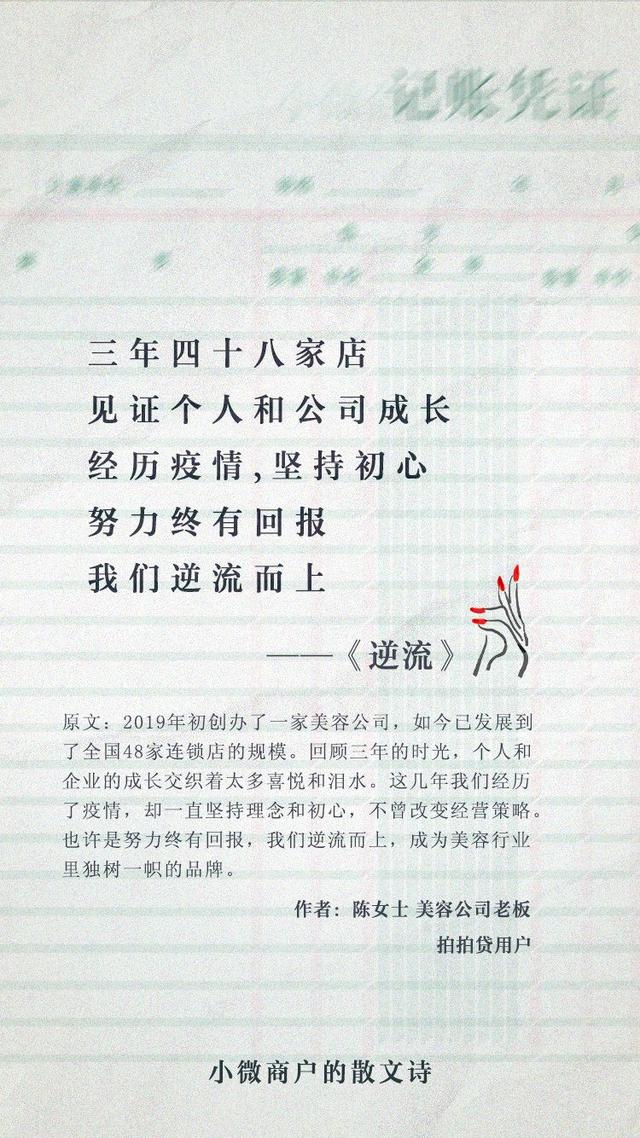 记账凭证
三年四十八家店
见证个人和公司成长
经历疫情,坚持初心
努力终有回报
我们逆流而上
——《逆流》
原文：2019年初创办了一家美容公司，如今已发展到
了全国48家连锁店的规模。回顾三年的时光，个人和
企业的成长交织着太多喜悦和泪水。这几年我们经历
了疫情，却一直坚持理念和初心，不曾改变经营策略。
也许是努力终有回报，我们逆流而上，成为美容行业
里独树一帜的品牌。
作者：陈女士 美容公司老板
拍拍贷用户
小微商户的散文诗